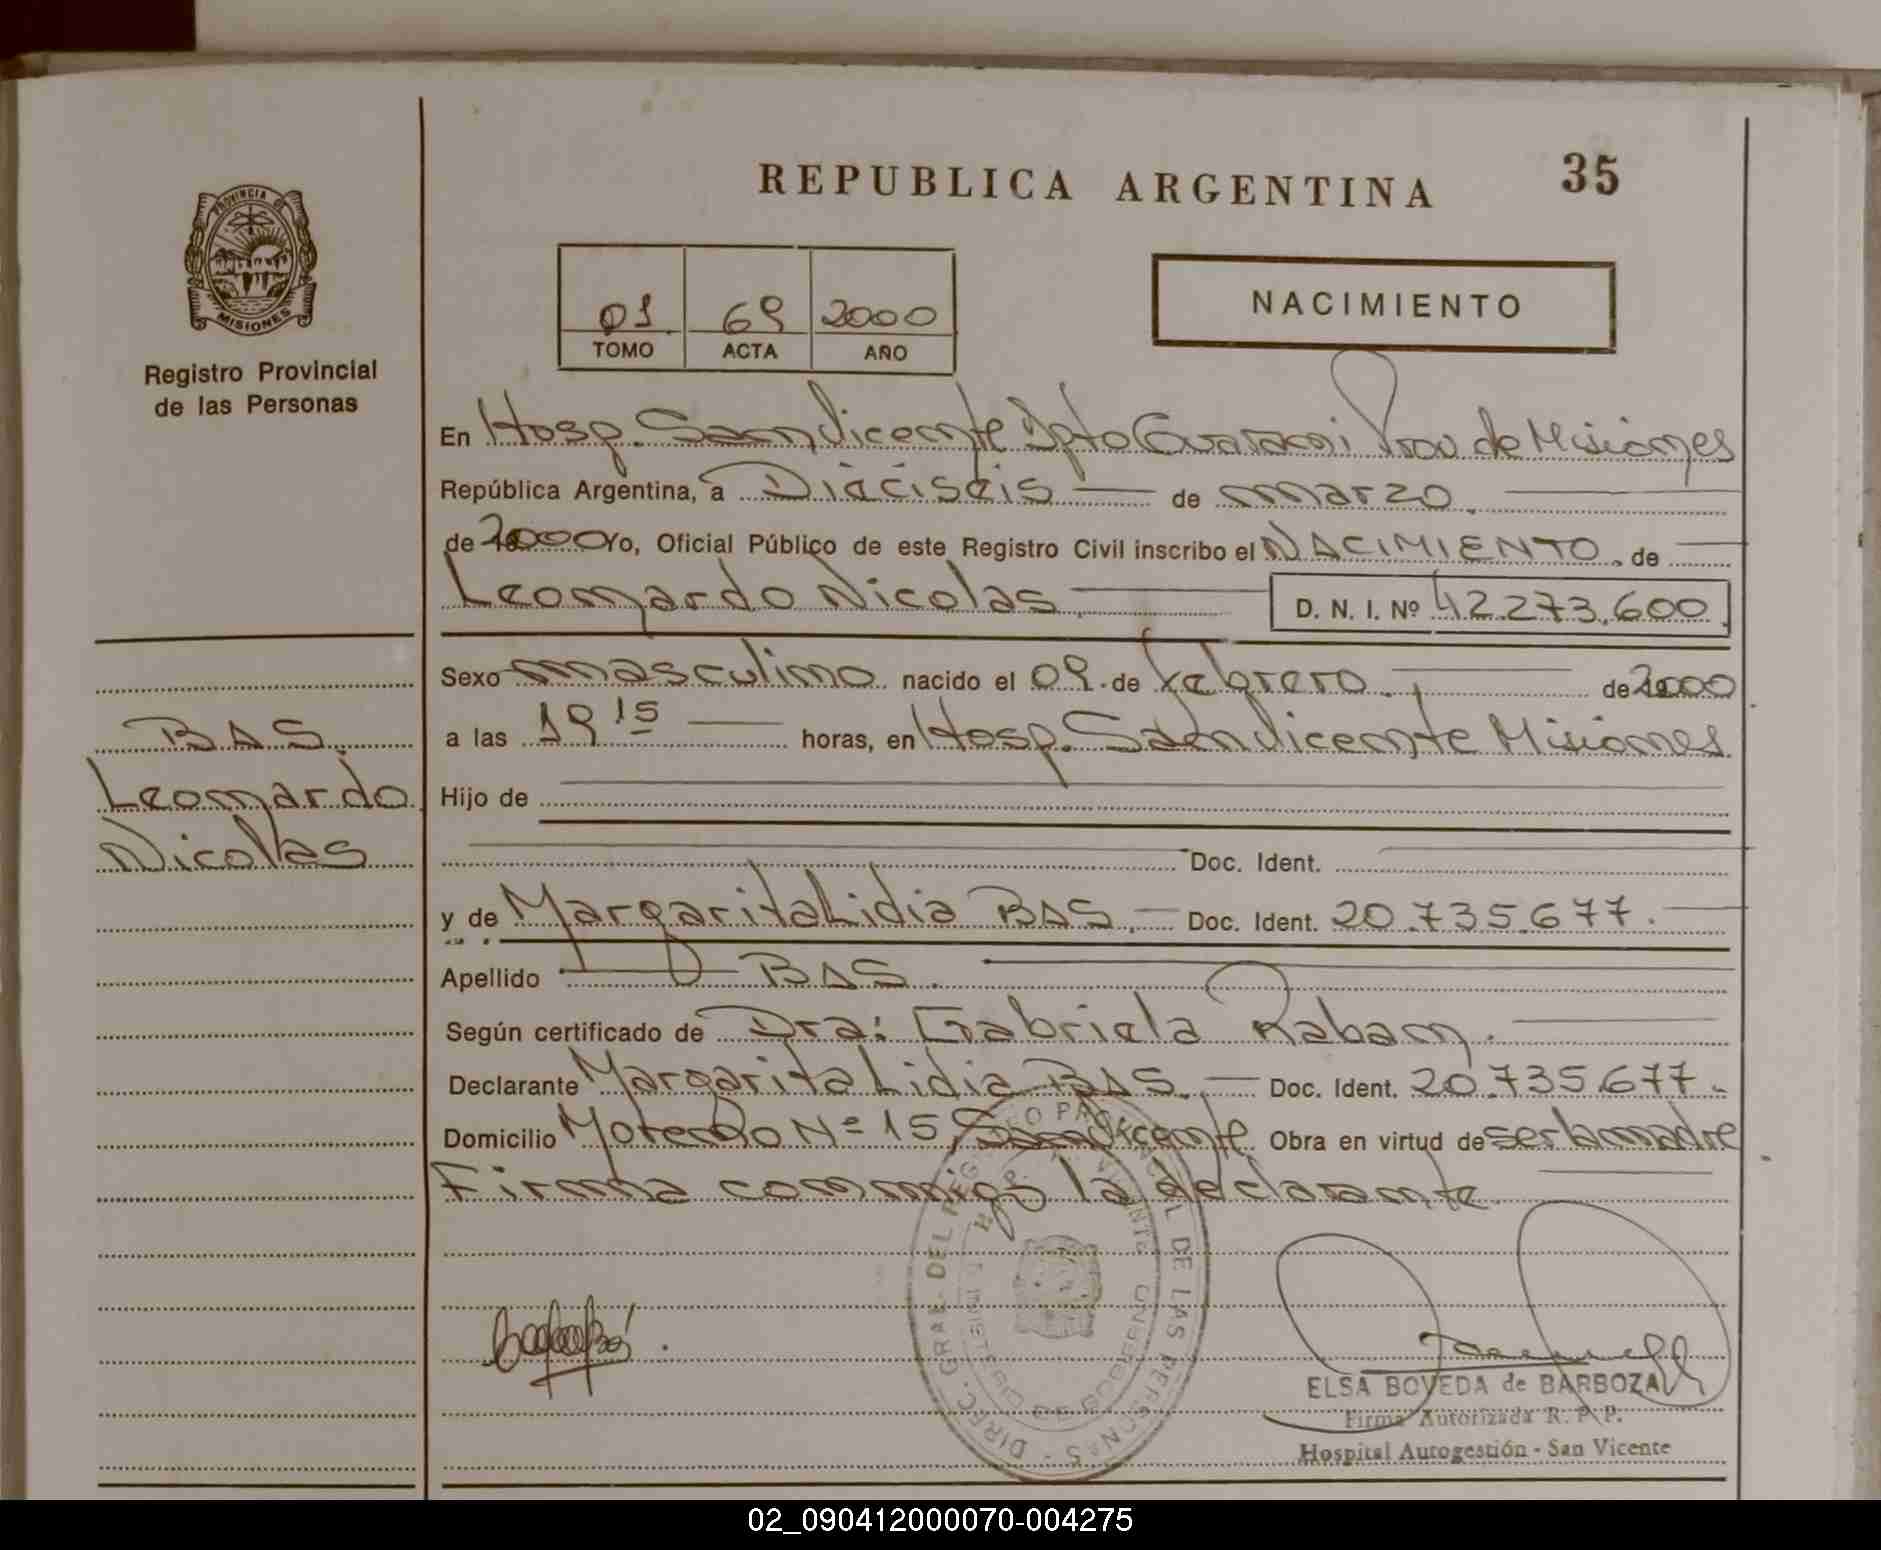 REPUBLICA ARGENTINA
35
PROVINCIA D
MISIONES
Registro Provincial
de las Personas
01 69 2000
TOMO ACTA AÑO
NACIMIENTO
En Hosp. San Vicente Dpto Guarani Prov de Misiones
República Argentina, a Dieciseis de marzo
de 2000 Yo, Oficial Público de este Registro Civil inscribo el NACIMIENTO, de
Leonardo Nicolas D. N. I. Nº 42.273.600
Sexo masculino nacido el 09 de febrero de 2000
a las 19 15 horas, en Hosp. San Vicente Misiones
BAS.
Leonardo
Nicolas
Hijo de
Doc. Ident.
y de Margarita Lidia BAS. Doc. Ident. 20.735.677.
Apellido BAS.
Según certificado de Dra: Gabriela Raban.
Declarante Margarita Lidia BAS. Doc. Ident. 20.735.677.
Domicilio Motendo Nº 15 San Vicente Obra en virtud de ser la madre
Firma conmigo la declarante.
DIREC. GRAL. DEL REGISTRO PROVINCIAL DE LAS PERSONAS
MINISTERIO DE GOBIERNO
ELSA BOVEDA de BARBOZA
Firma Autorizada R. P. P.
Hospital Autogestión - San Vicente
02_090412000070-004275